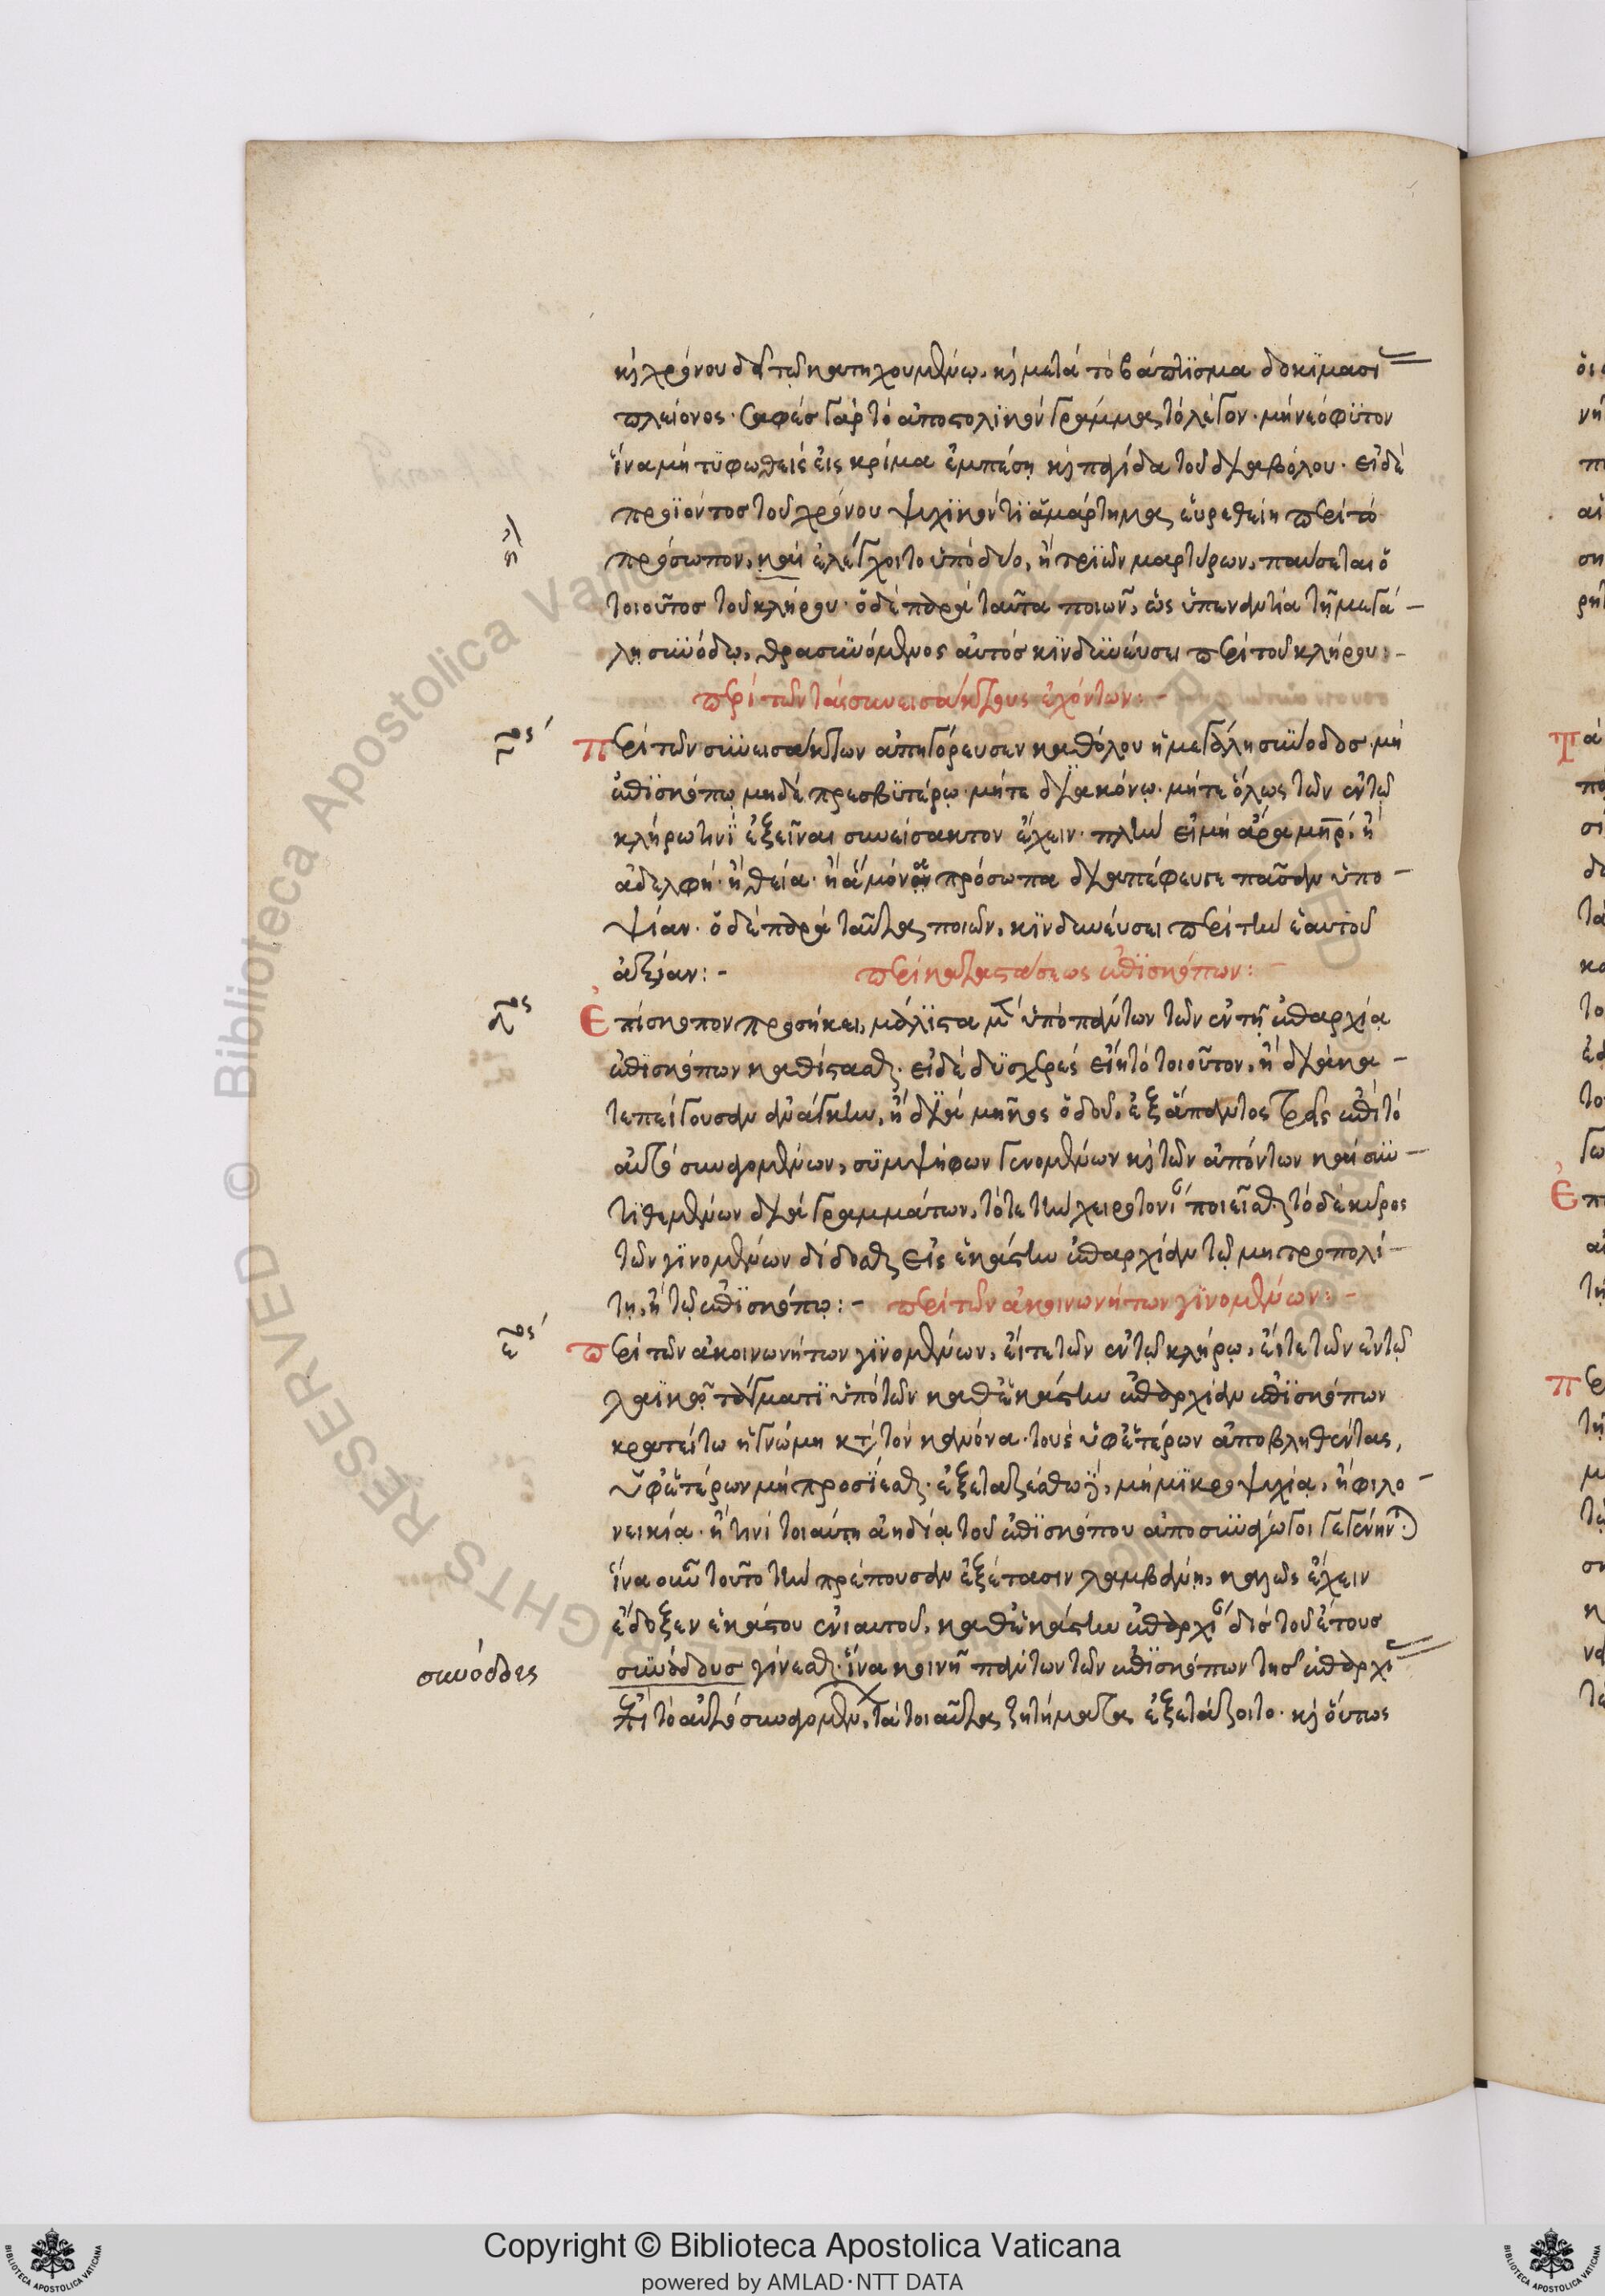 κ χρόνου δεῖ τῷ κατηχουμένῳ, κ μετὰ τὸ βάπτϊσμα δοκϊμασί
πλείονος· σαφὲσ γὰρ τὸ ἀποστολϊκὸν γράμμα τὸ λέγον· μὴ νεόφϋτον
ἵνα μὴ τϋφωθεὶς εἰς κρίμα ἐμπέσῃ κ παγίδα τοῦ διαβόλου· εἰ δὲ
προϊόντοσ τοῦ χρόνου ψυχϊκόν τϊ ἁμάρτημα εὑρεθείη περὶ τὸ
πρόσωπον, καὶ ἐλέγχοιτο ὑπὸ δύο, ἢ τριῶν μαρτύρων, παύσεται ὁ
τοιοῦτοσ τοῦ κλήρου· ὁ δὲ παρὰ ταῦτα ποιῶν, ὡς ὑπεναντία τῇ μεγά-
λῃ συνόδῳ, θρασυνόμενος αὐτὸσ κϊνδυνεύσει περὶ τοῦ κλήρου:-
περὶ τῶν τὰς συνεισάκτους ἐχόντων:-
γος περὶ τῶν συνεισάκτων ἀπηγόρευσεν καθόλου ἡ μεγάλη σύνοδοσ· μὴ
ἐπϊσκόπῳ μηδὲ πρεσβϋτέρῳ· μήτε διακόνῳ· μήτε ὅλως τῶν ἐν τῷ
κλήρω τινῒ ἐξεῖναι συνείσακτον ἔχειν· πλὴν εἰ μὴ ἄρα μρί, ἢ
ἀδελφή· ἢ θεία· ἢ ἃ μόνον πρόσωπα διαπέφευγε πᾶσαν ὑπο-
ψίαν· ὁ δὲ παρὰ ταῦτα ποιῶν, κϊνδυνεύσει περὶ τὴν ἑαυτοῦ
ἀξίαν:- περὶ καταστάσεως ἐπϊσκόπων:-
δος Ἐπίσκοπον προσήκει, μάλϊστα μὲν ὑπὸ πάντων τῶν ἐν τῇ ἐπαρχίᾳ
ἐπϊσκόπων καθίστασθαι· εἰ δὲ δϋσχερὲς εἴη τὸ τοιοῦτον, ἢ διὰ κα-
τεπείγουσαν ἀνάγκην, ἢ διὰ μῆκος ὁδοῦ, ἐξ ἅπαντος τρεῖς ἐπὶ τὸ
αὐτὸ συναγομένων, συμψήφων γενομένων κ τῶν ἀπόντων καὶ συν-
τϊθεμένων διὰ γραμμάτων, τότε τὴν χειροτονί ποιεῖσθαι· τὸ δὲ κῦρος
τῶν γϊνομένων δίδοσθαι εἰς ἑκάστην ἐπαρχίαν τῷ μητροπολί-
τῃ, ἢ τῷ ἐπϊσκόπῳ:- περὶ τῶν ἀκοινωνήτων γϊνομένων:-
εος περὶ τῶν ἀκοινωνήτων γϊνομένων, εἴτε τῶν ἐν τῷ κλήρῳ, εἴτε τῶν ἐν τῷ
λαϊκῷ τάγματϊ ὑπὸ τῶν καθ' ἑκάστην ἐπαρχίαν ἐπϊσκόπων
κρατείτω ἡ γνώμη κτ τὸν κανόνα· τοὺς ὑφ' ἑτέρων ἀποβληθέντας,
ὑφ' ἑτέρων μὴ προσΐεσθαι· ἐξεταζέσθω δὲ, μὴ μϊκροψυχίᾳ, ἢ φιλο-
νεικίᾳ· ἢ τινὶ τοιαύτῃ ἀηδίᾳ τοῦ ἐπϊσκόπου ἀποσυνάγωγοι γεγένηνται
ἵνα οὖν τοῦτο τὴν πρέπουσαν ἐξέτασιν λαμβάνῃ, καλῶς ἔχειν
ἔδοξεν ἑκάστου ἐνιαυτοῦ, καθ' ἑκάστην ἐπαρχί δὶσ τοῦ ἔτουσ
συνόδους γίνεσθαι· ἵνα κοινῇ πάντων τῶν ἐπϊσκόπων τησ ἐπαρχί
ἐπὶ τὸ αὐτὸ συναγομένων, τὰ τοιαῦτα ζητήματα ἐξετάζοιτο· κ οὕτως
συνόδοις